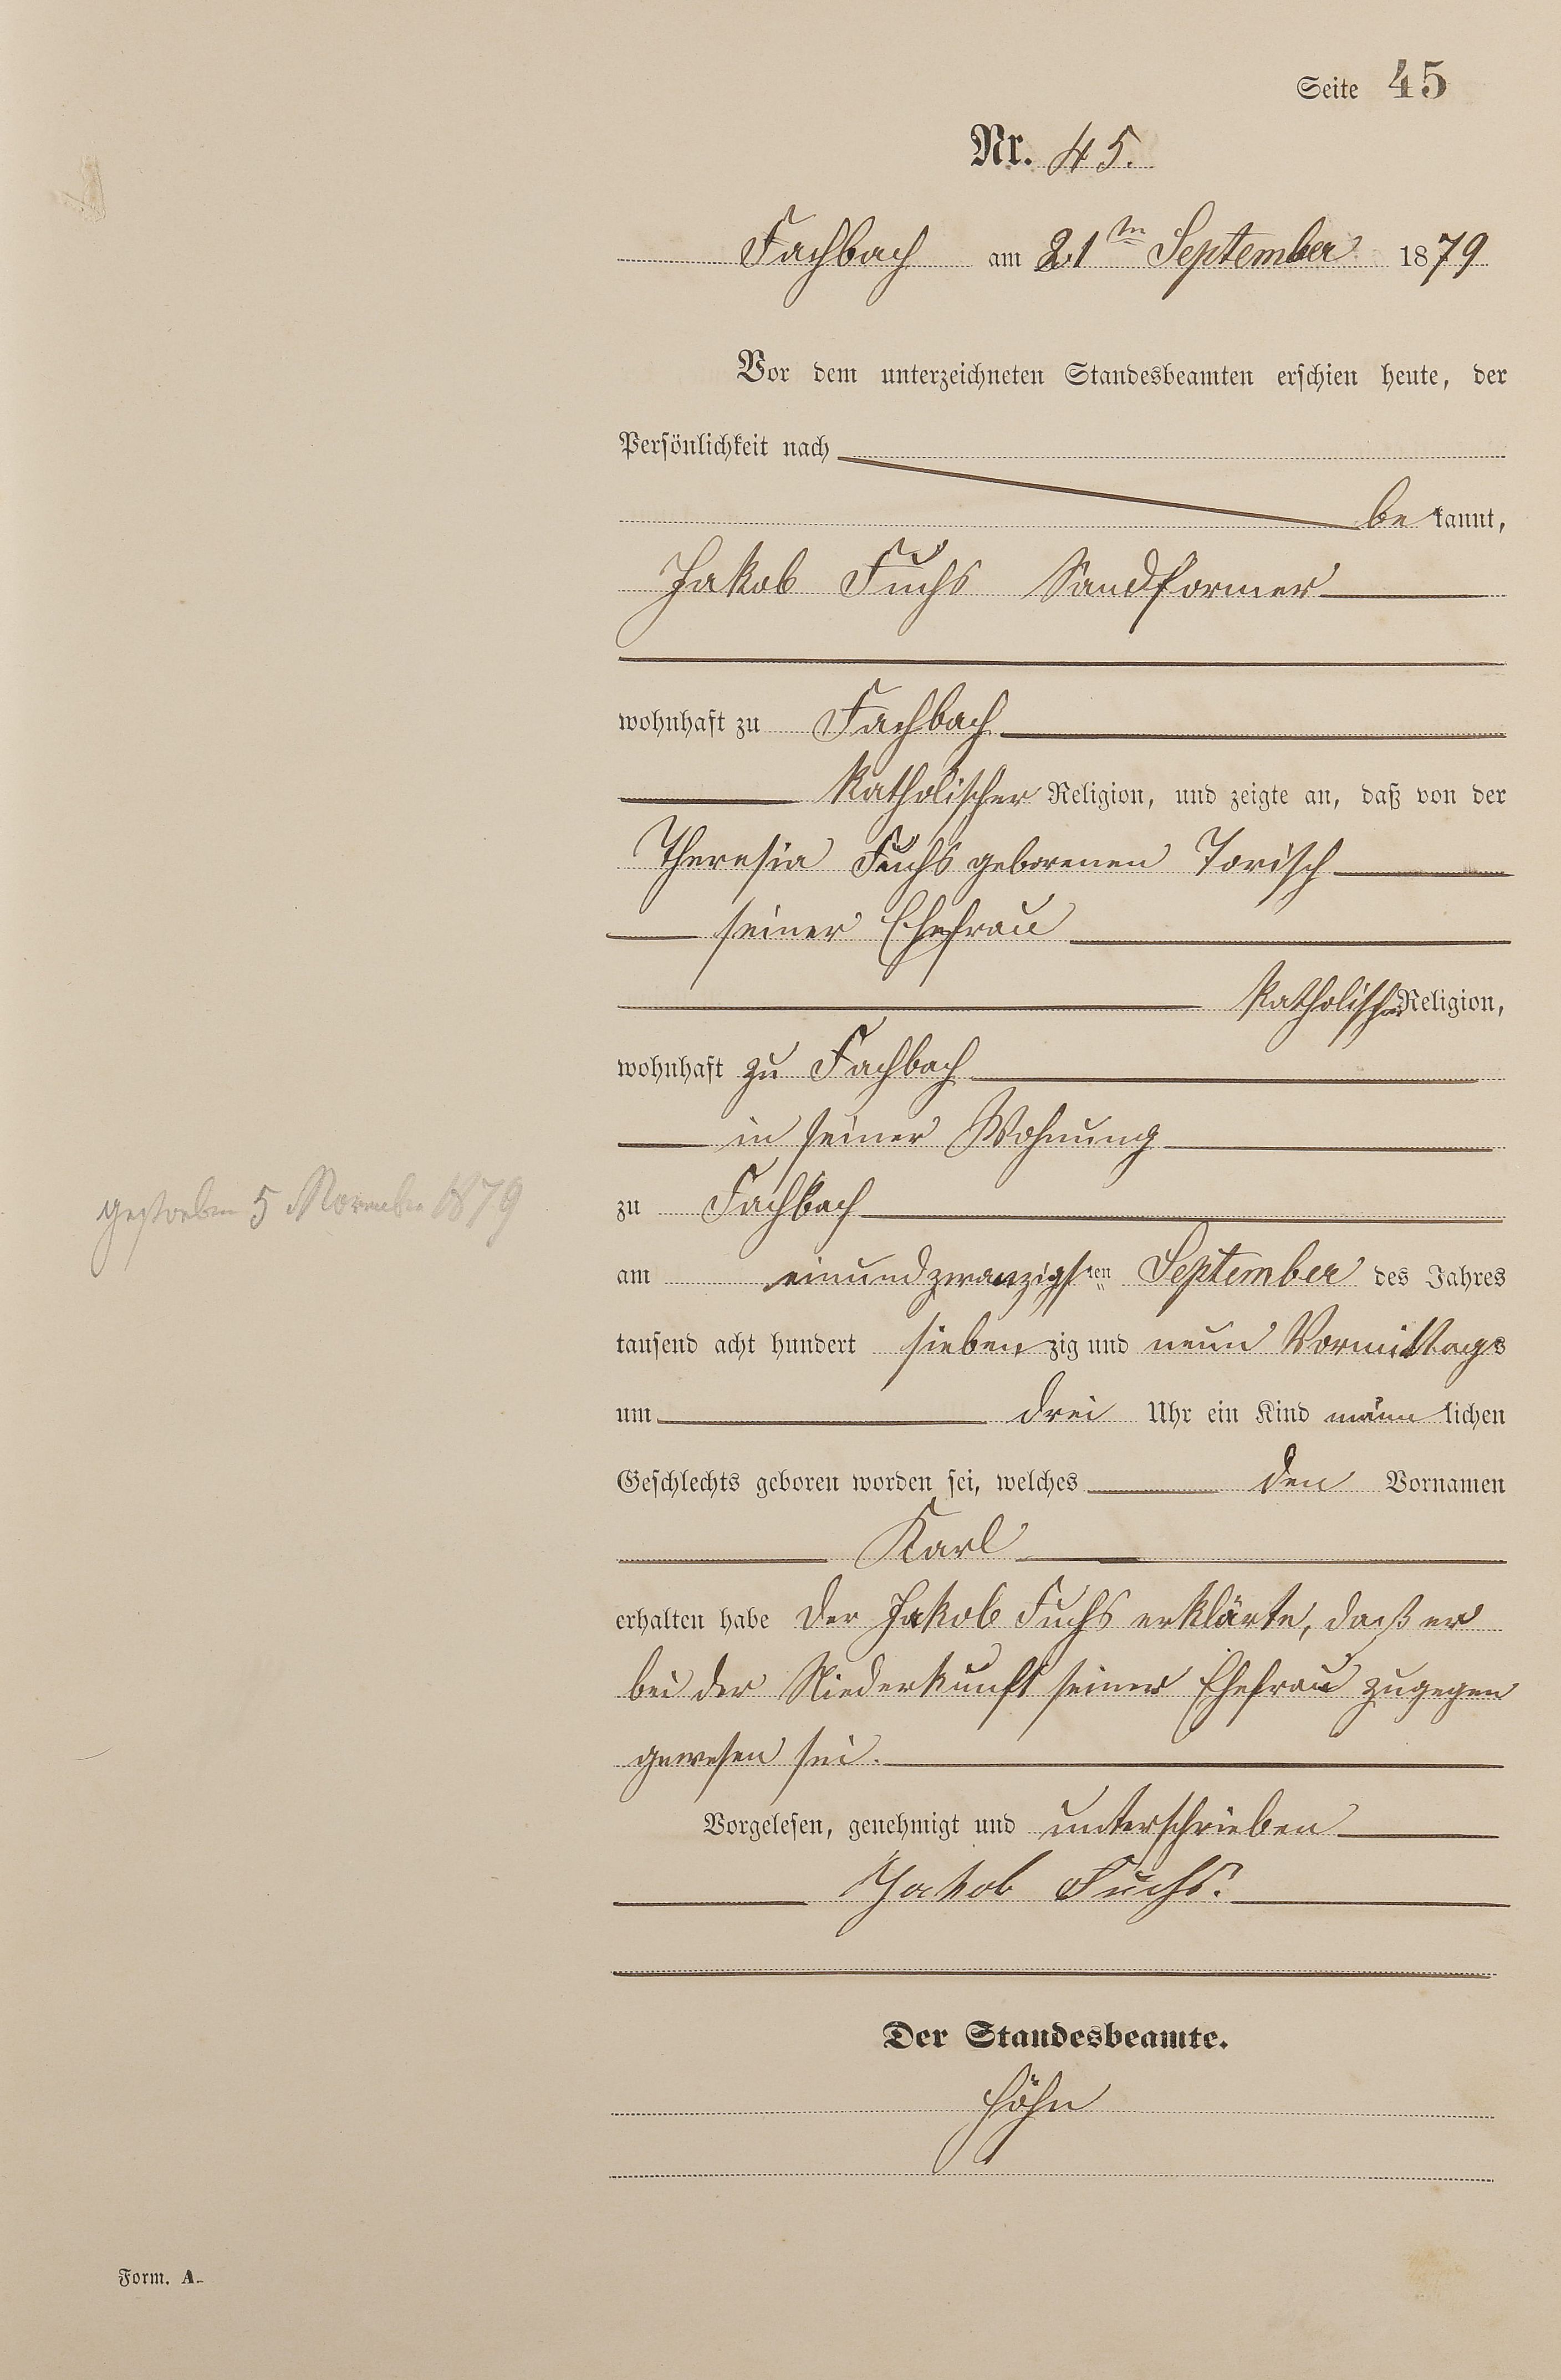 Seite 45
Nr. 45.
Fachbach am 21ten September 1879
Vor dem unterzeichneten Standesbeamten erschien heute, der
Persönlichkeit nach
be kannt,
Jakob Fuchs Sandformer
wohnhaft zu Fachbach
katholischer Religion, und zeigte an, daß von der
Theresia Fuchs geborenen Torisch
seiner Ehefrau
katholischer Religion,
wohnhaft zu Fachbach
in seiner Wohnung
gestorben 5 November 1879
zu Fachbach
am einundzwanzigsten September des Jahres
tausend acht hundert siebenzig und neun Vormittags
um drei Uhr ein Kind männlichen
Geschlechts geboren worden sei, welches den Vornamen
Karl
erhalten habe Der Jakob Fuchs erklärte, daß er
bei der Niederkunft seiner Ehefrau zugegen
gewesen sei.
Vorgelesen, genehmigt und unterschrieben
Jakob Fuchs.
Der Standesbeamte.
Höhn
Form. A.